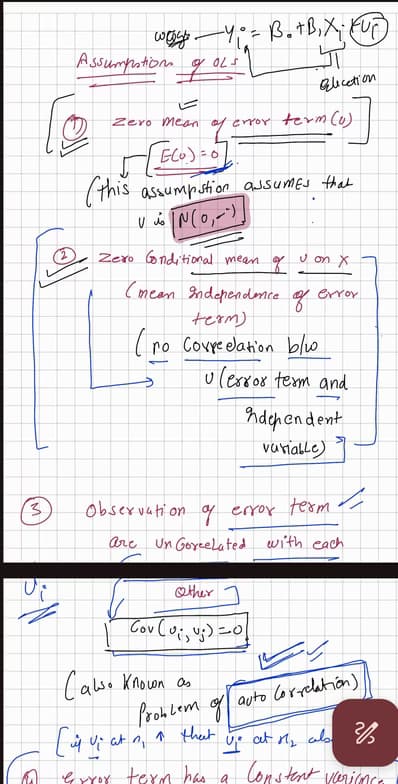 wage — Yi = B₀ + B₁Xi + Ui
Assumpstion of OLS
① zero mean of error term (u)
E(U) = 0
(this assumpstion assumes that
U is N(0,
② zero Conditional mean of U on X
(mean independence of error
term)
(no Correelation b/w
U (error term and
independent
variable)
③ Observation of error term
are UnCorrelated with each
Ui
Other
Cov(Ui, Uj) = 0
(also Known as
Problem of auto Correlation)
[if Ui at n₁ ↑ that Uj at n₂ also
error term has a Constant variance